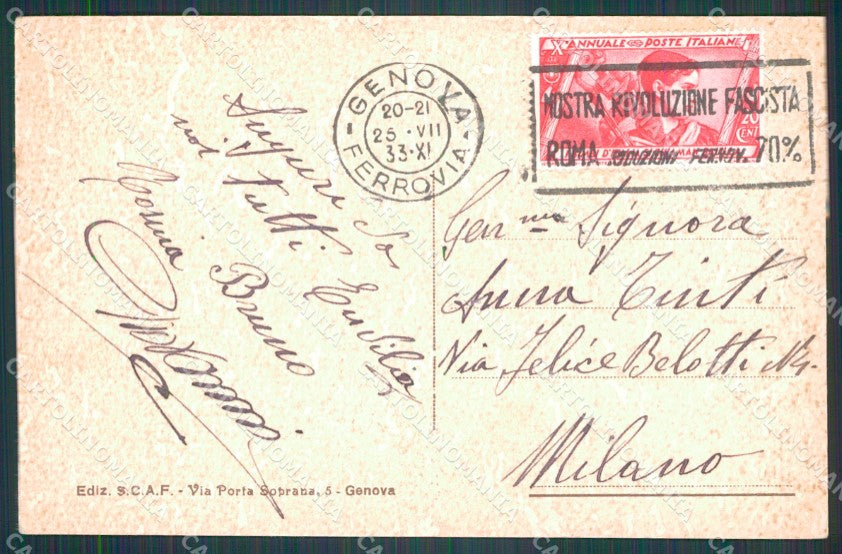 Auguri da
noi Tutti Emilia
Bruno
Norina
Ediz. S.C.A.F. - Via Porta Soprana, 5 - Genova
GENOVA
20-21
25·VII
33·XI
FERROVIA
X ANNUALE POSTE ITALIANE
20
CENT
MOSTRA RIVOLUZIONE FASCISTA
ROMA RIDUZIONI FERROV. 70%
Gen.ma Signora
Anna Tinti
Via Felice Belotti
Milano
CARTOLINOMANIA